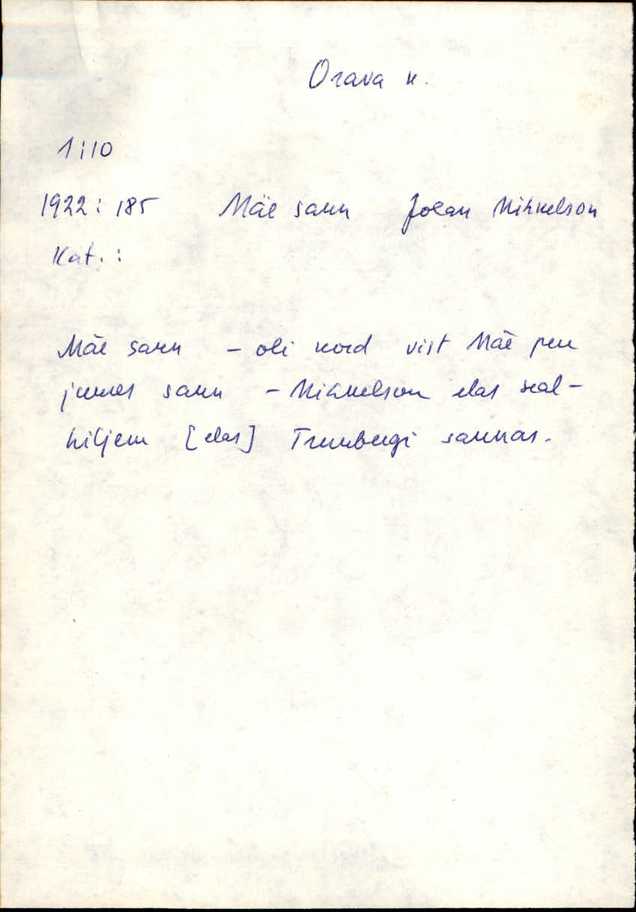 Orava k.
1:10
1922: 185 Mäe saun Joean Mihkelson
Kat.:
Mäe saun – oli kord vist Mäe pere
juures saun – Mihkelson elas seal –
hiljem [elas] Trumbergi saunas.